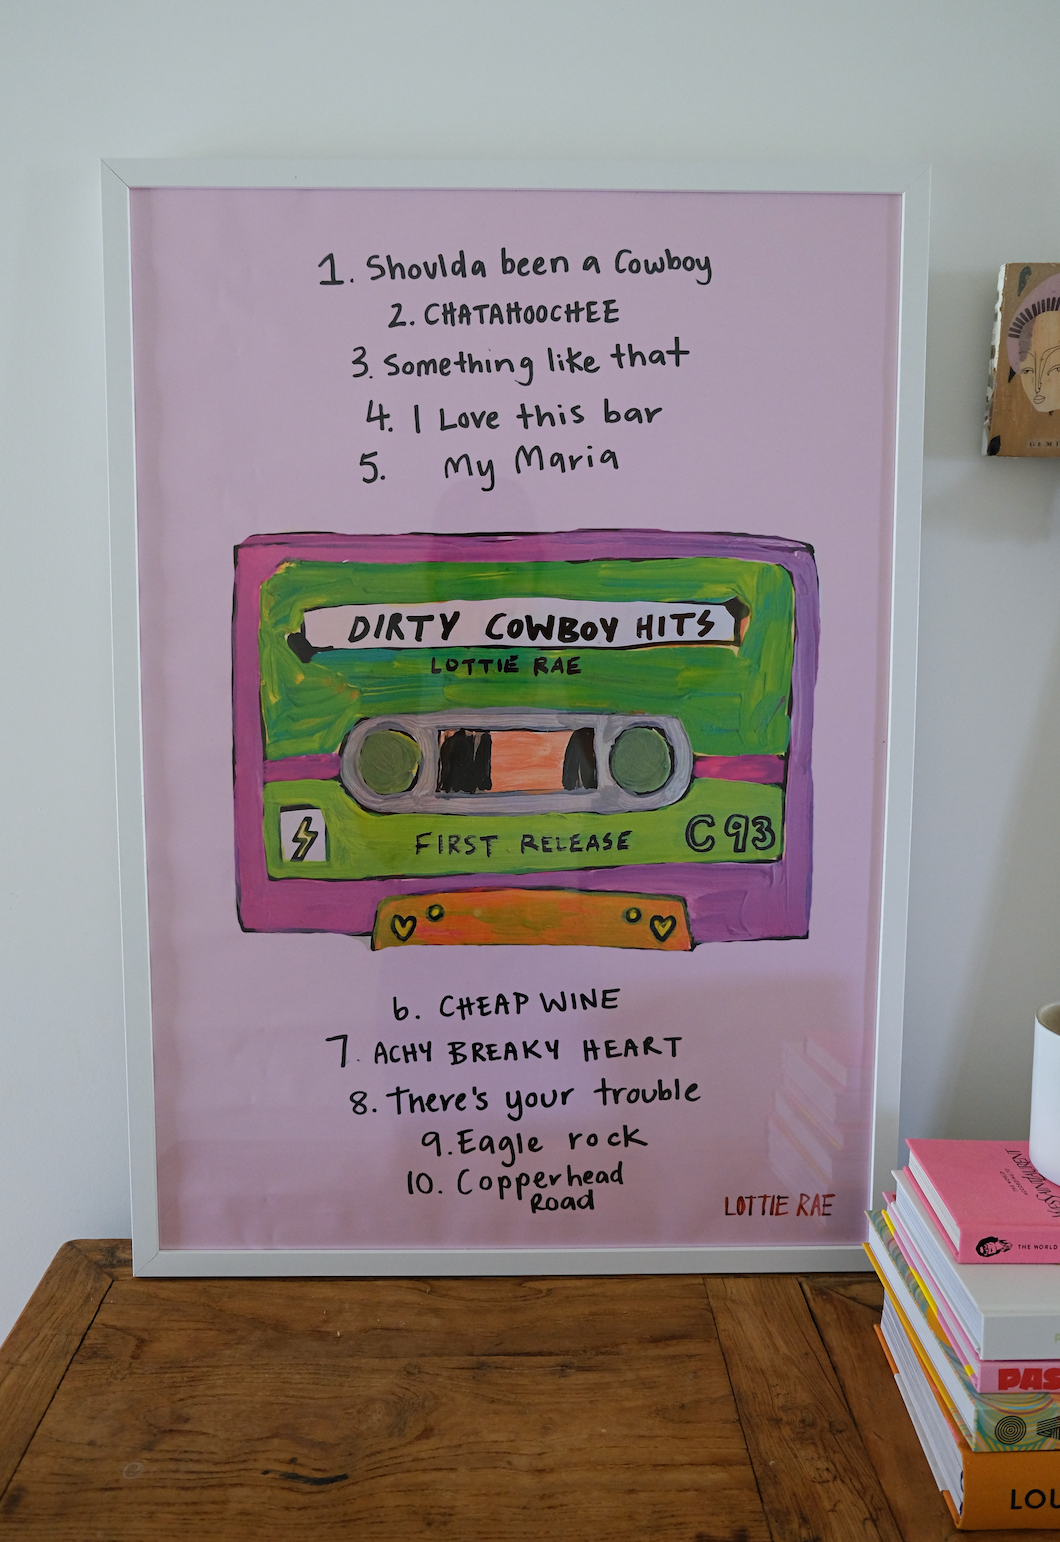 1. Shoulda been a Cowboy
2. CHATAHOOCHEE
3. Something like that
4. I Love this bar
5. My Maria
DIRTY COWBOY HITS
LOTTIE RAE
FIRST RELEASE
C93
6. CHEAP WINE
7. ACHY BREAKY HEART
8. There's your trouble
9. Eagle rock
10. Copperhead
Road
LOTTIE RAE
GEMI
THE WORLD
PAS
LOU